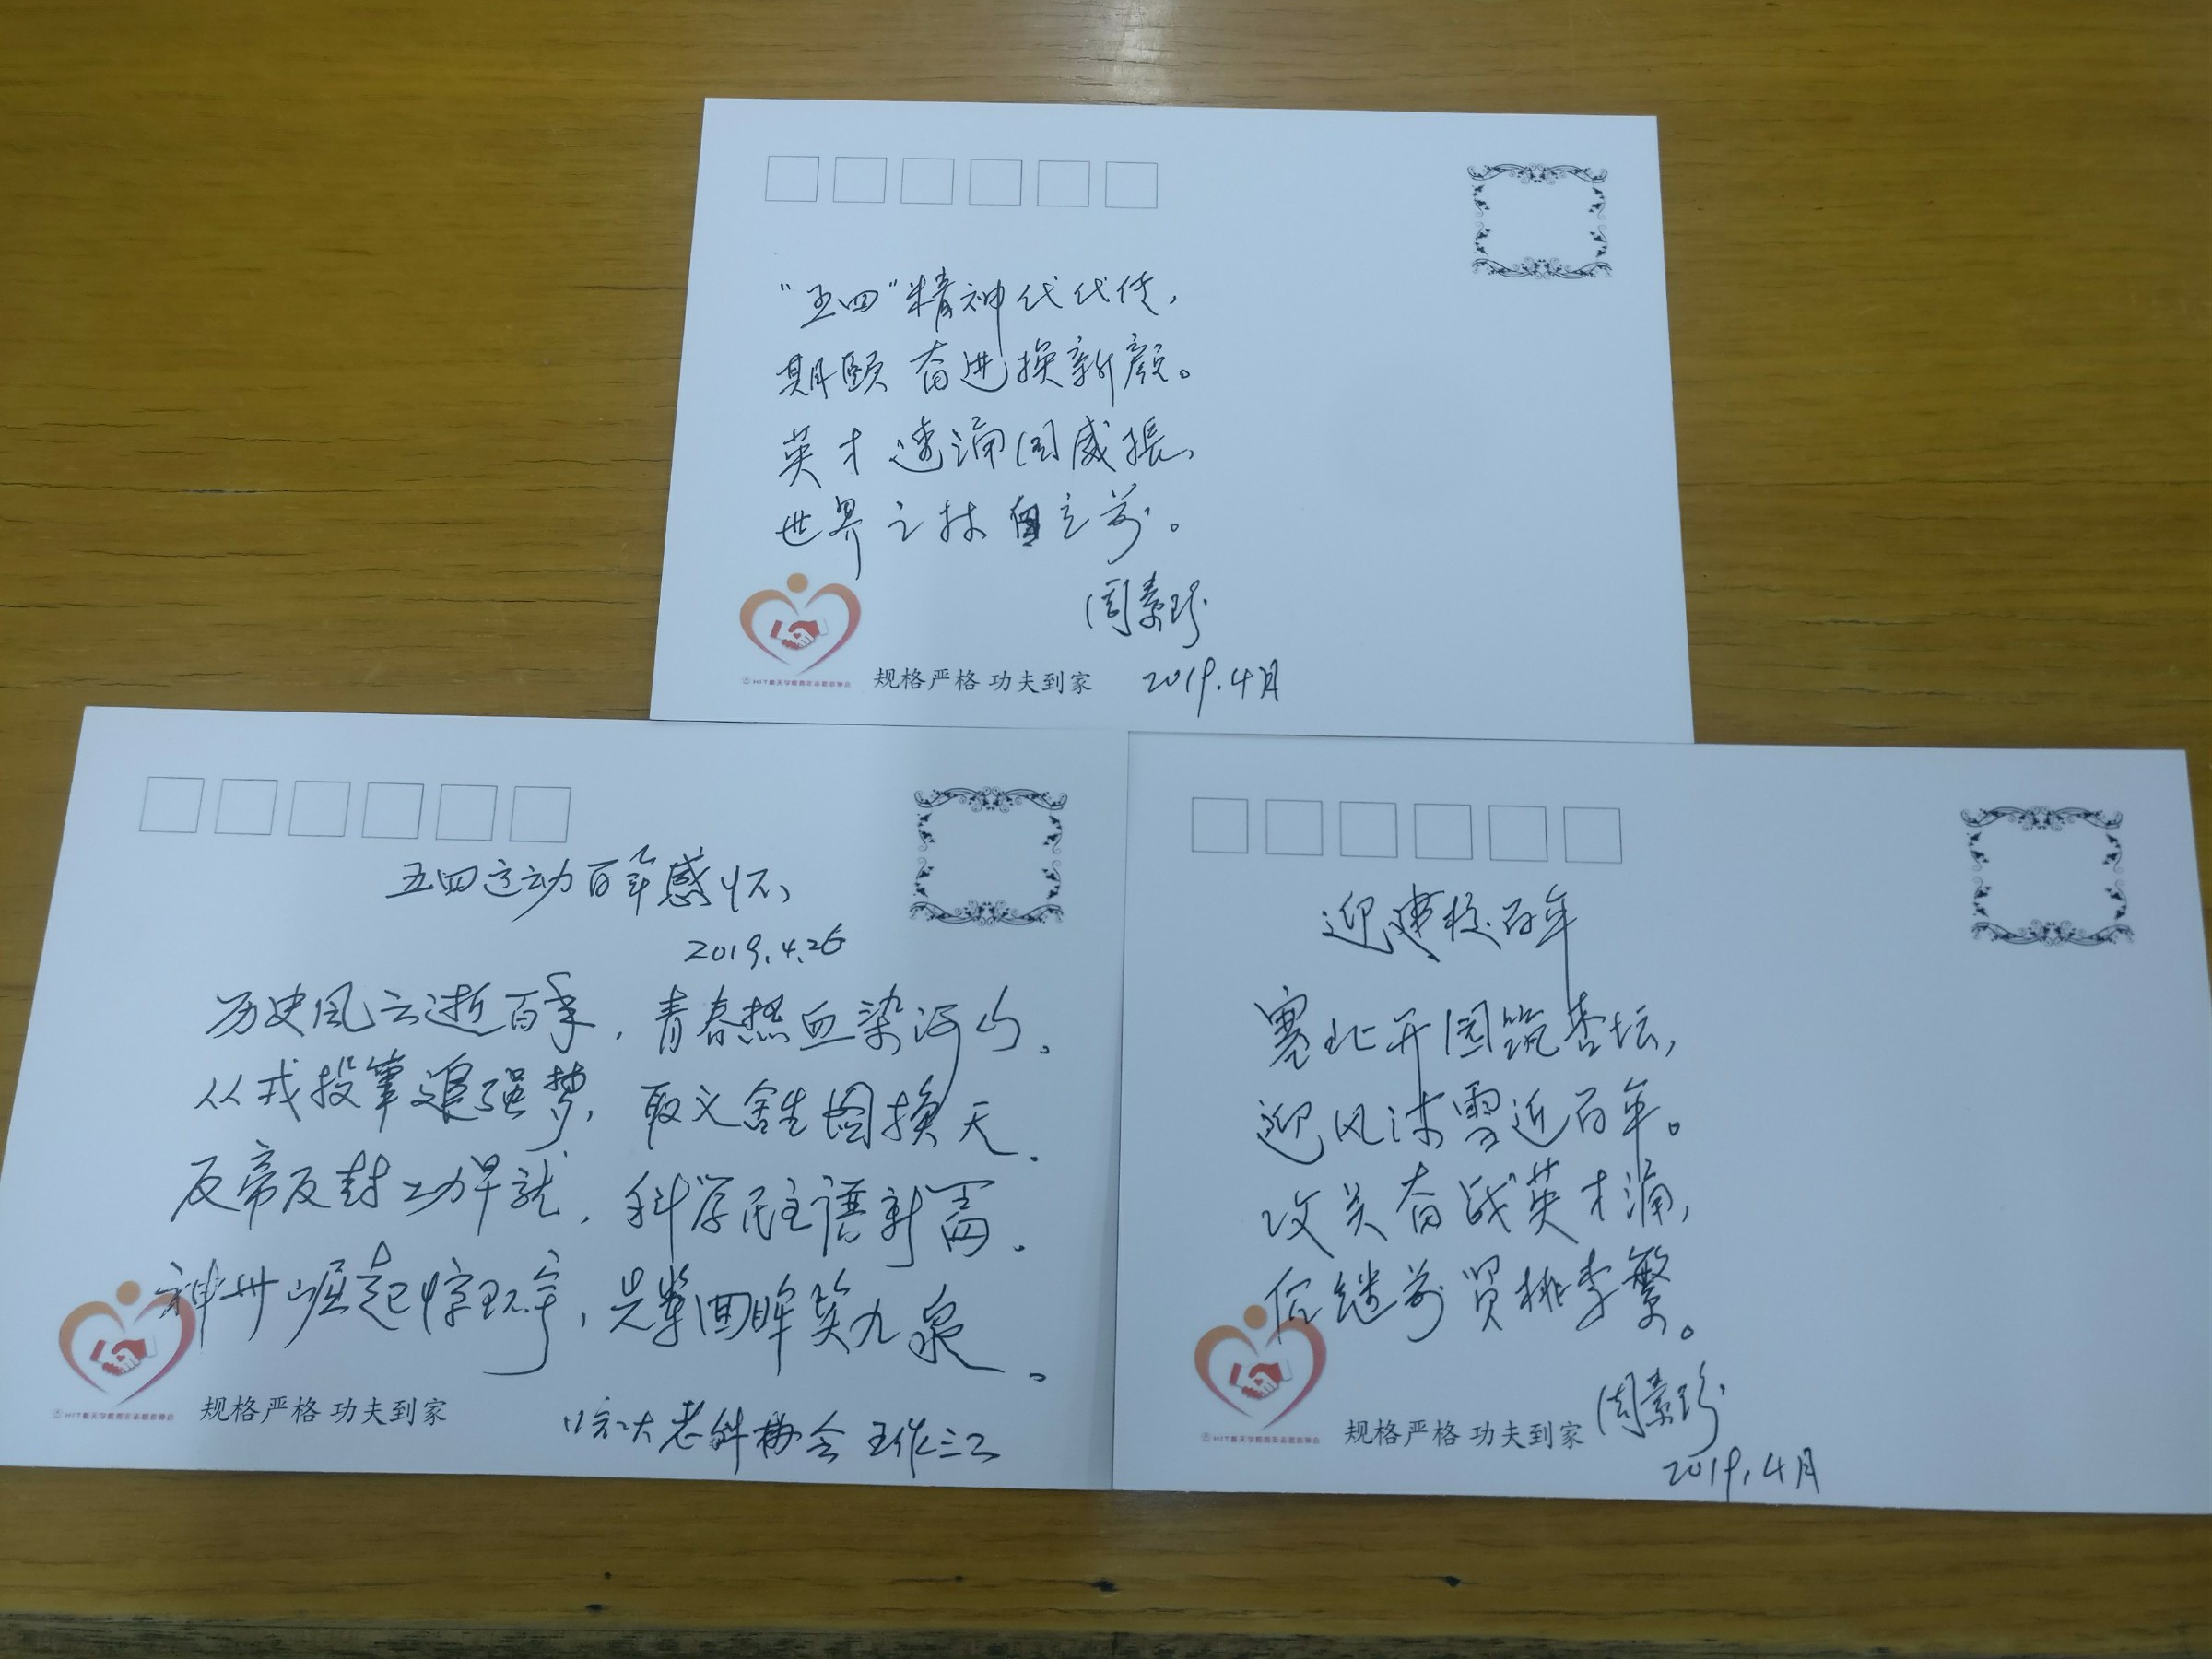 “五四”精神代代传,
期颐奋进换新颜。
英才递涌国威振,
世界之林自立前。
周素珍
规格严格 功夫到家
2019.4月
五四运动百年感怀
2019.4.26
历史风云逝百年, 青春热血染河山。
从戎投笔追强梦, 取义舍生图换天。
反帝反封功早就, 科学民主谱新篇。
神州崛起惊环宇, 先辈回眸笑九泉。
规格严格 功夫到家
哈工大老科协会 王作三
迎建校百年
塞北开园筑杏坛,
迎风沐雪近百年。
攻关奋战英才涌,
后继前贤桃李繁。
规格严格 功夫到家
周素珍
2019.4月